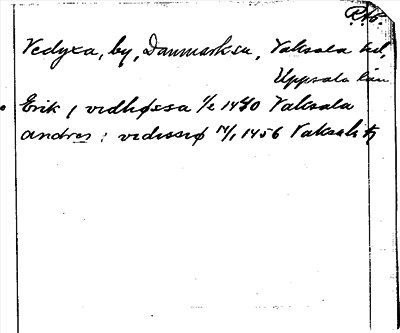 Vedyxa, by, Danmarks sn, Vaksala hd,
Uppsala län
Erik i vidhøssa 1/2 1440 Vaksala
andres i vedissø 14/1 1456 Vaksala tg